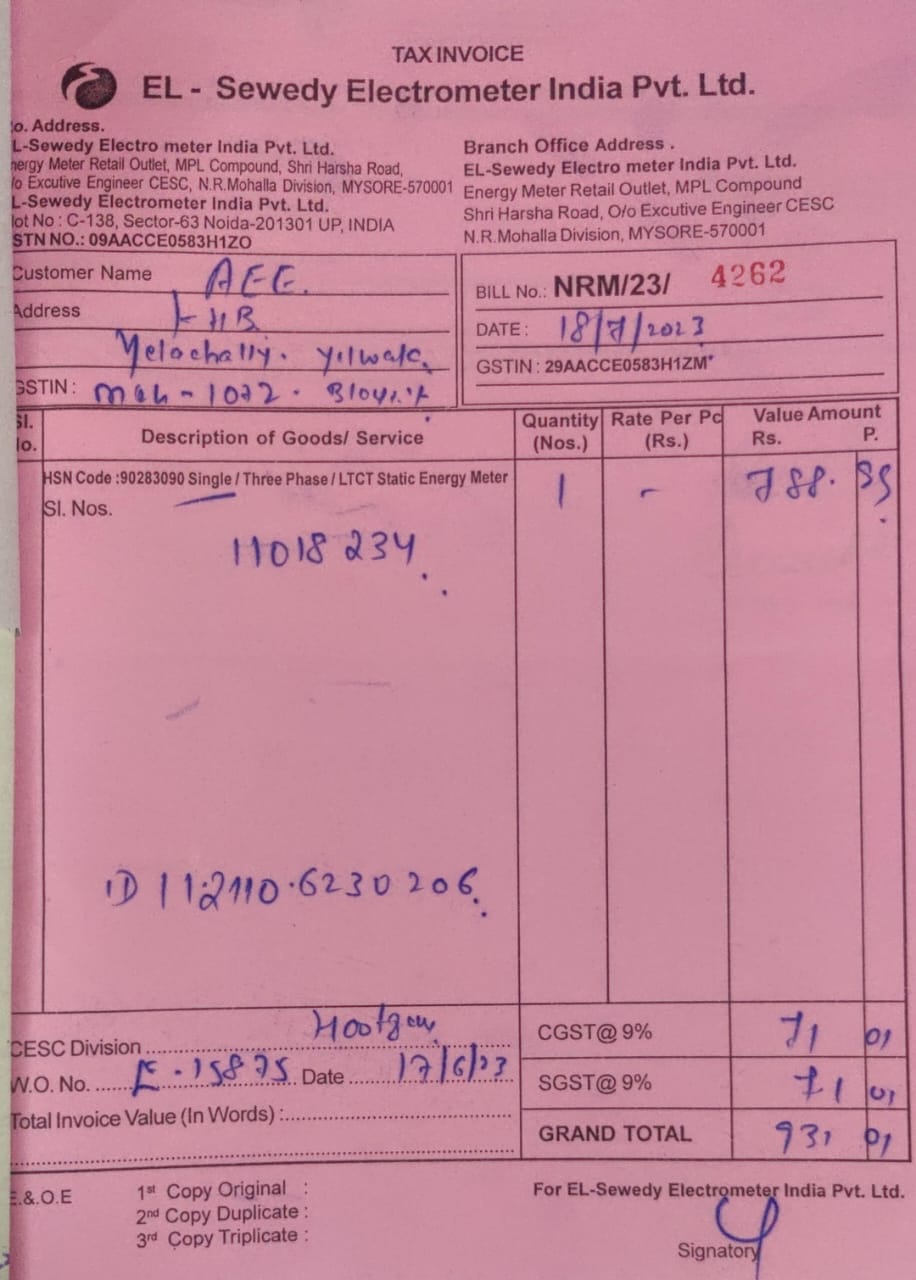 TAX INVOICE
EL - Sewedy Electrometer India Pvt. Ltd.
o. Address.
L-Sewedy Electro meter India Pvt. Ltd.
nergy Meter Retail Outlet, MPL Compound, Shri Harsha Road,
/o Excutive Engineer CESC, N.R.Mohalla Division, MYSORE-570001
L-Sewedy Electrometer India Pvt. Ltd.
lot No : C-138, Sector-63 Noida-201301 UP, INDIA
STN NO.: 09AACCE0583H1ZO
Branch Office Address .
EL-Sewedy Electro meter India Pvt. Ltd.
Energy Meter Retail Outlet, MPL Compound
Shri Harsha Road, O/o Excutive Engineer CESC
N.R.Mohalla Division, MYSORE-570001
Customer Name AEE.
Address KHB
Yelachally. Yilwala.
GSTIN : 1072.
BILL No.: NRM/23/ 4262
DATE : 18/7/2023
GSTIN : 29AACCE0583H1ZM*
Sl. No. Description of Goods/ Service Quantity (Nos.) Rate Per Pc (Rs.) Value Amount Rs. P.
HSN Code :90283090 Single / Three Phase / LTCT Static Energy Meter 1 - 788. 99
Sl. Nos.
11018234
ID 112110.6230206.
CESC Division
W.O. No. E.15875 Date 17/6/23
Total Invoice Value (In Words) :
CGST@ 9% 71 01
SGST@ 9% 71 01
GRAND TOTAL 931 01
E.&.O.E
1st Copy Original :
2nd Copy Duplicate :
3rd Copy Triplicate :
For EL-Sewedy Electrometer India Pvt. Ltd.
Signatory